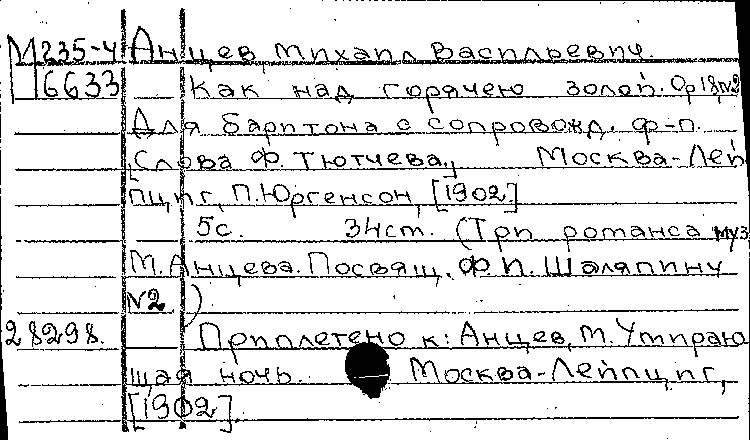 М235-4 Анцев, Михаил Васильевич.
16633 Как над горячею золой. Op.18, №2
Для баритона с сопровожд. ф-п.
[Слова Ф. Тютчева.] Москва-Лей
пциг, П. Юргенсон, [1902.]
5с. 34cm. (Три романса муз.
М. Анцева. Посвящ. Ф.И. Шаляпину
№2.)
28298. Приплетено к: Анцев, М. Умираю
щая ночь. Москва-Лейпциг,
[1902].